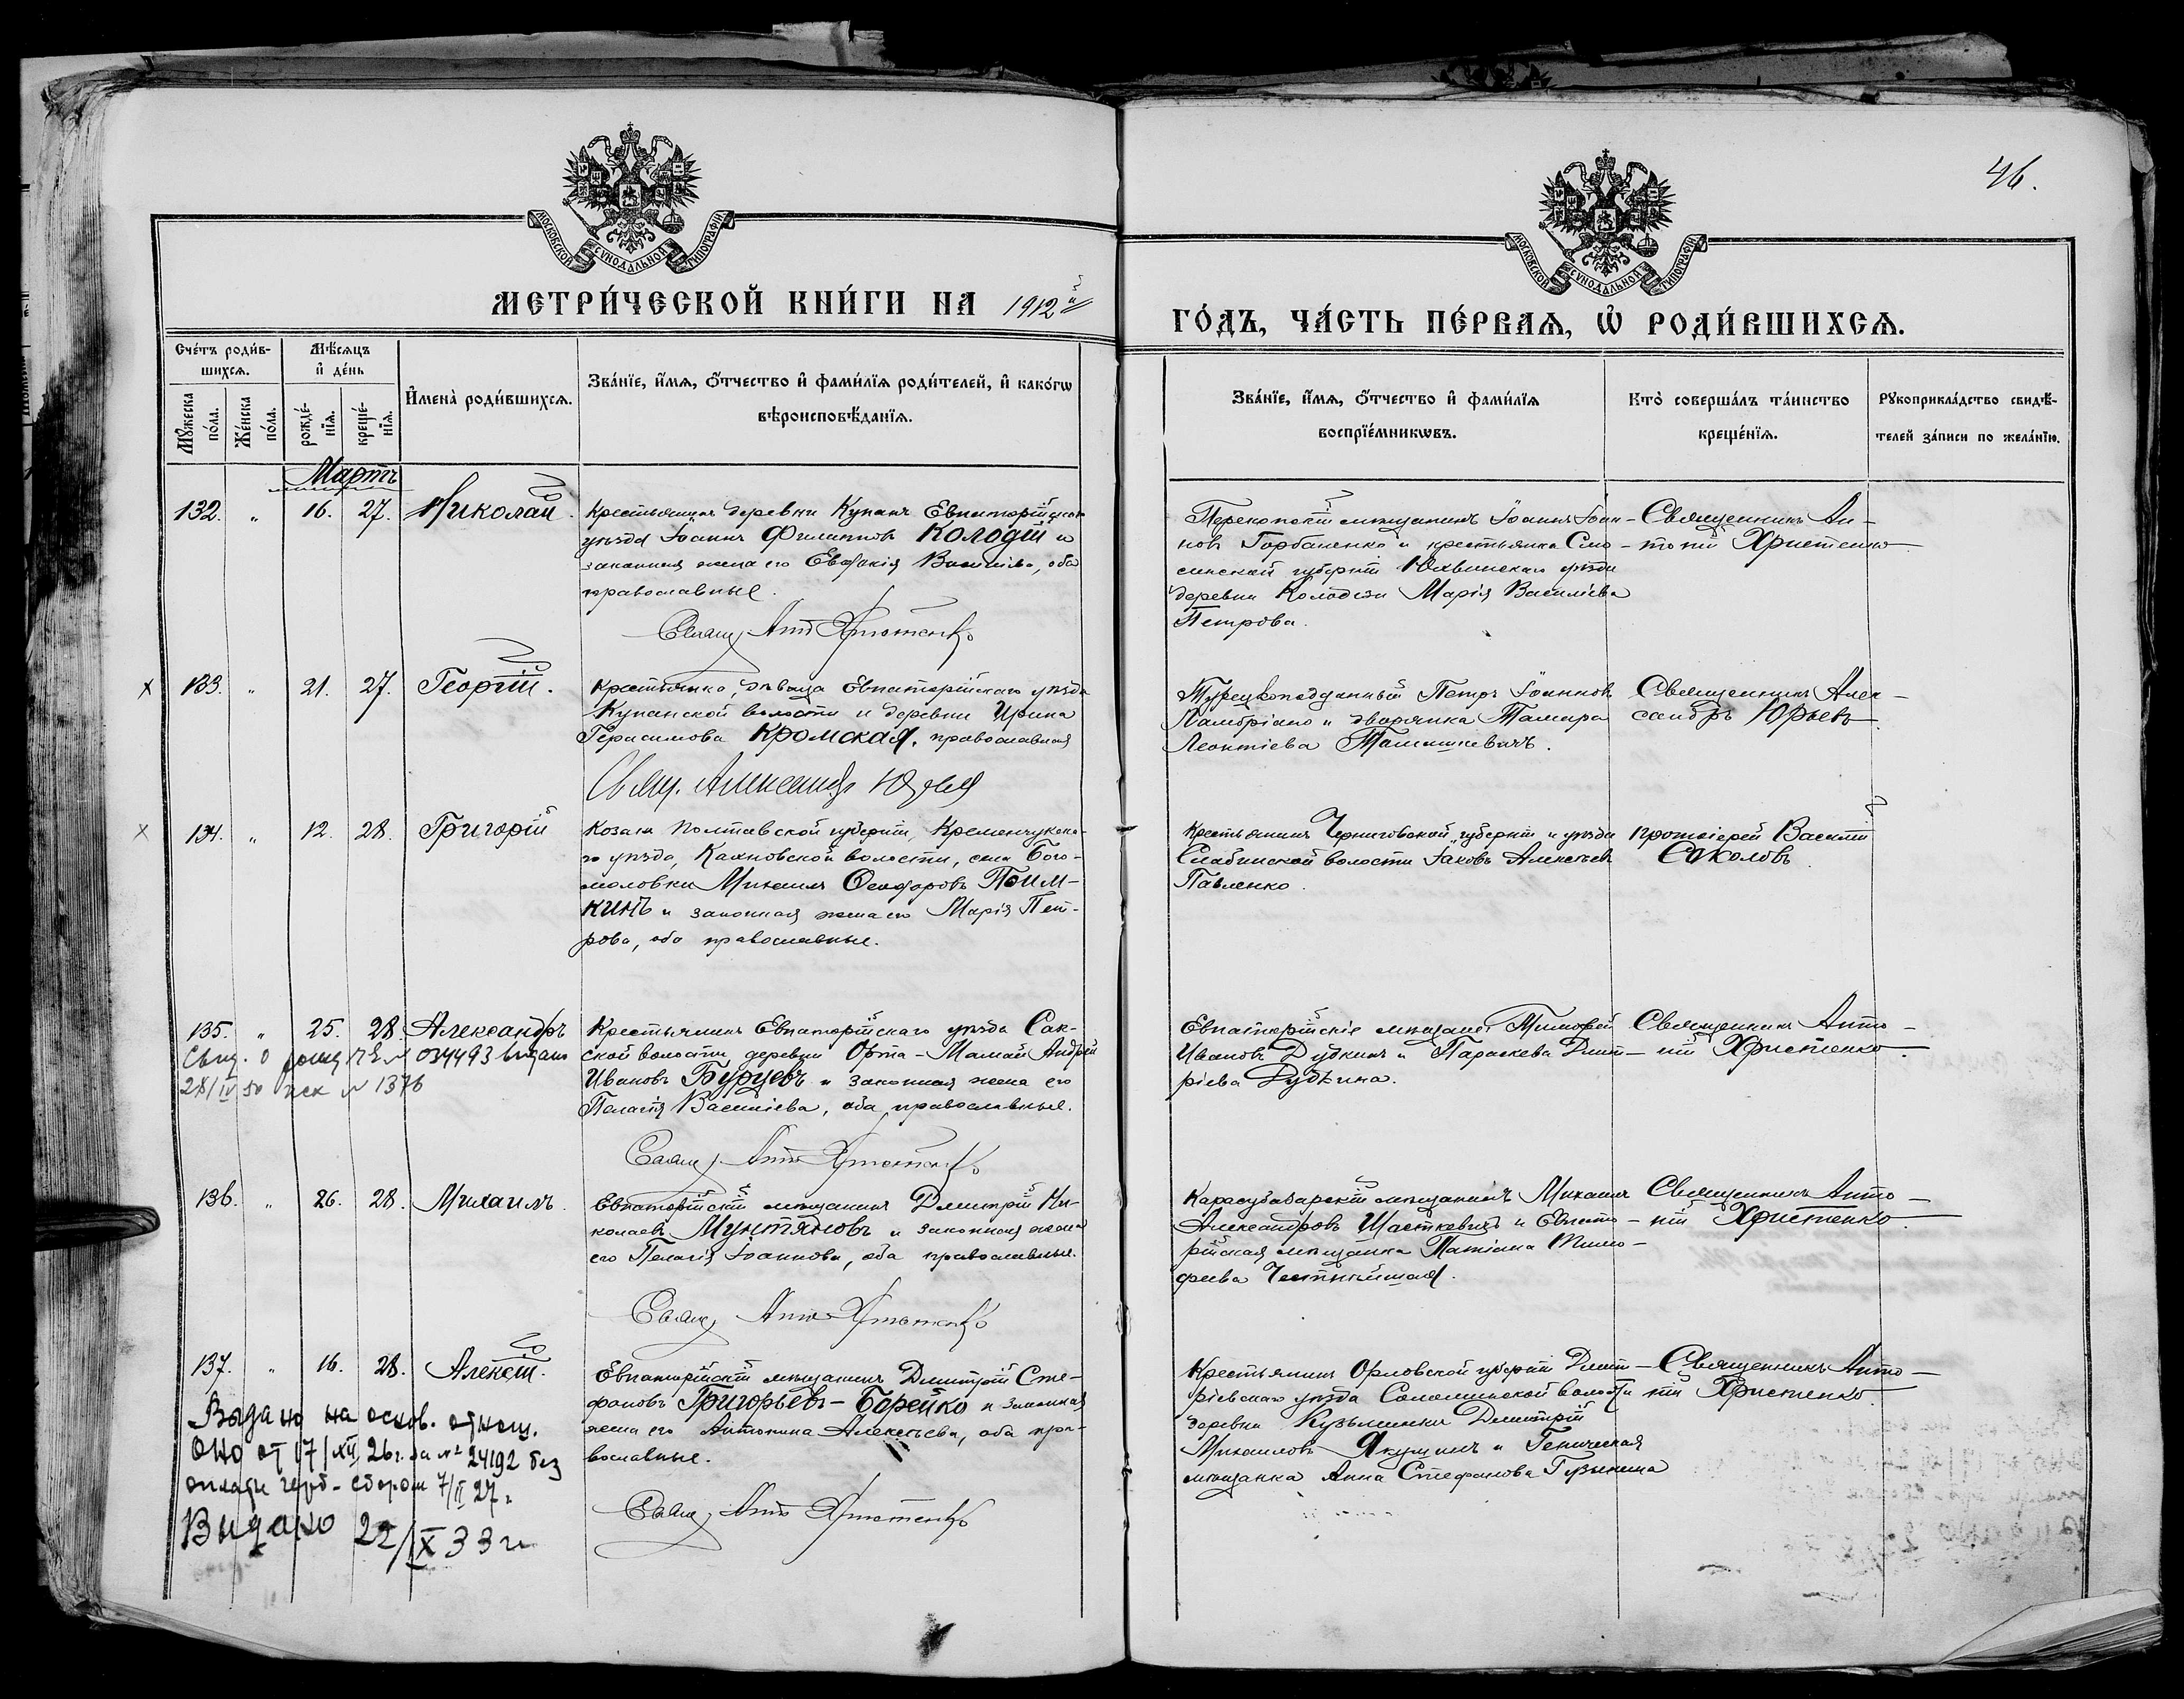 46.
МОСКОВСКОЙ СУНОДАЛЬНОЙ ТИПОГРАФІИ
МОСКОВСКОЙ СУНОДАЛЬНОЙ ТИПОГРАФІИ
МЕТРИ́ЧЕСКОЙ КНИ́ГИ НА 1912й
ГО́ДЪ, ЧА́СТЬ ПЕ́РВАѦ, Ѡ҆ РОДИ́ВШИХСѦ.
Сче́тъ роди́в-
шихсѧ.
Мꙋ́жеска
по́ла.
Же́нска
по́ла.
Мѣ́сѧцъ
и҆ де́нь
рожде́-
нїѧ.
креще́-
нїѧ.
И҆мена̀ роди́вшихсѧ.
Зва́нїе, и҆́мѧ, ѻ҆́тчество и҆ фами́лїѧ роди́телей, и҆ како́гѡ
вѣроисповѣ́данїѧ.
Зва́нїе, и҆́мѧ, ѻ҆́тчество и҆ фами́лїѧ
воспрїе́мникѡвъ.
Кто̀ соверша́лъ та́инство
креще́нїѧ.
Рꙋкоприкла́дство свидѣ́-
телей за́писи по жела́нїю.
Мартъ
132. " 16. 27. Николай.
Крестьянинъ деревни Купань Евпаторійскаго
уѣзда Іоаннъ Филипповъ Колодій и
законная жена его Евфанія Васильева, оба
православные.
Свящ. Антоній Христенко
Перекопскій мѣщанинъ Іоаннъ Іоан-
новъ Горбаненко и крестьянка Смо-
ленской губерніи Юхновскаго уѣзда
деревни Колодези Марія Василіева
Петрова.
Священникъ Ан-
тоній Христенко
133. " 21. 27. Георгій.
Крестьянка, дѣвица Евпаторійскаго уѣзда
Купанской волости и деревни Ирина
Герасимова Кромская, православная
Свящ. Александръ Юрьевъ
Турецкоподданный Петръ Іоанновъ
Ламбріано и дворянка Тамара
Леонтіева Томашкевичъ.
Священникъ Алек-
сандръ Юрьевъ.
134. " 12. 28. Григорій
Козакъ Полтавской губерніи, Кременчукска-
го уѣзда, Кахновской волости, села Бого-
моловки Михаилъ Ѳеодоровъ Пойм-
кинъ и законная жена его Марія Пет-
рова, оба православные.
Крестьянинъ Черниговской губерніи и уѣзда
Слабинской волости Іаковъ Алексѣевъ
Павленко.
Протоіерей Василій
Соколовъ.
135. " 25. 28. Александръ
Свид. о рожд. 034493 выдано
28/IV 50 № 1376
Крестьянинъ Евпаторійскаго уѣзда Сак-
ской волости, деревни Орта-Мамай Андрей
Ивановъ Буруевъ и законная жена его
Пелагія Василіева, оба православные.
Свящ. Антоній Христенко
Евпаторійскіе мѣщане Тимофей
Ивановъ Дудкинъ и Параскева Димит-
ріева Дудкина.
Священникъ Анто-
ній Христенко.
136. " 26. 28. Михаилъ.
Евпаторійскій мѣщанинъ Димитрій Ни-
колаевъ Мунтяновъ и законная жена
его Пелагія Іоаннова, оба православные.
Свящ. Антоній Христенко
Карасубазарскій мѣщанинъ Михаилъ
Александровъ Шасткевичъ и Евпато-
рійская мѣщанка Татіана Тимо-
феева Честнѣйшая.
Священникъ Анто-
ній Христенко.
137. " 16. 28. Алексій.
Выдано на основ. отнош.
от 17/XII 26 г. за № 24192 без
оплаты герб-сбором 7/II 27 г.
Выдано 22/IX 33 г
Евпаторійскій мѣщанинъ Димитрій Сте-
фановъ Григорьевъ-Борейко и законная
жена его Антонина Алексѣева, оба пра-
вославные.
Свящ. Антоній Христенко
Крестьянинъ Орловской губерніи Димит-
ріевскаго уѣзда Соломинской волости
деревни Кузьминки Димитрій
Михаиловъ Якушинъ и Геническая
мѣщанка Анна Стефанова
Священникъ Анто-
ній Христенко.